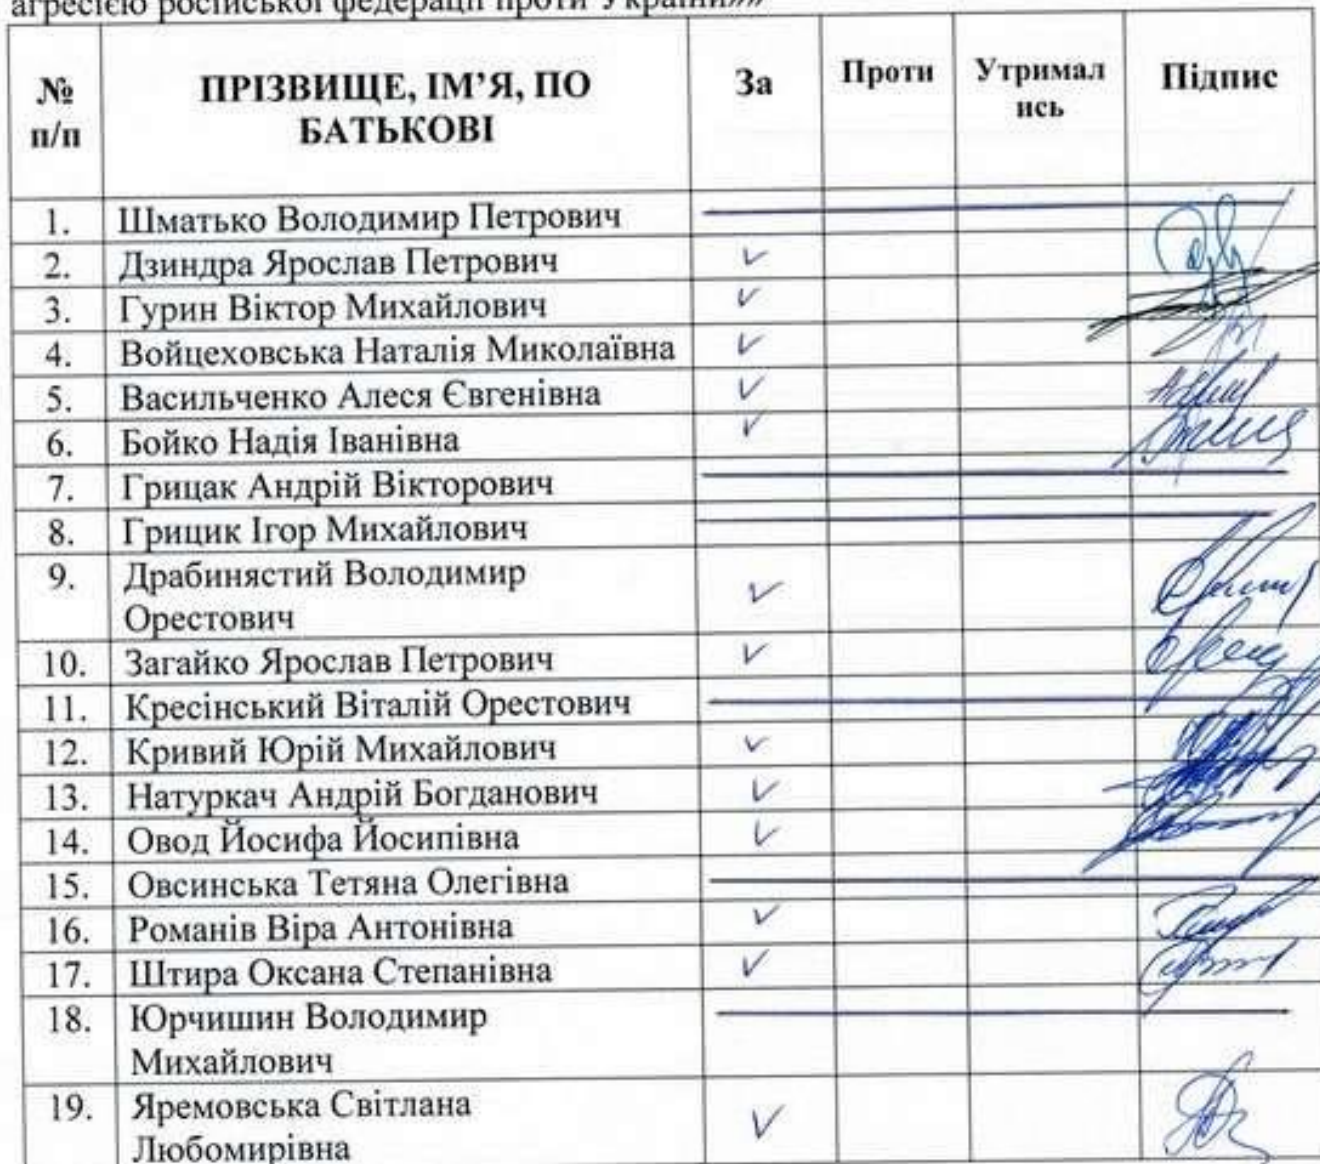 агресією російської федерації проти України»»
№ п/п ПРІЗВИЩЕ, ІМ’Я, ПО БАТЬКОВІ За Проти Утримались Підпис
1. Шматько Володимир Петрович
2. Дзиндра Ярослав Петрович
3. Гурин Віктор Михайлович
4. Войцеховська Наталія Миколаївна
5. Васильченко Алеся Євгенівна
6. Бойко Надія Іванівна
7. Грицак Андрій Вікторович
8. Грицик Ігор Михайлович
9. Драбинястий Володимир
Орестович
10. Загайко Ярослав Петрович
11. Кресінський Віталій Орестович
12. Кривий Юрій Михайлович
13. Натуркач Андрій Богданович
14. Овод Йосифа Йосипівна
15. Овсинська Тетяна Олегівна
16. Романів Віра Антонівна
17. Штира Оксана Степанівна
18. Юрчишин Володимир
Михайлович
19. Яремовська Світлана
Любомирівна